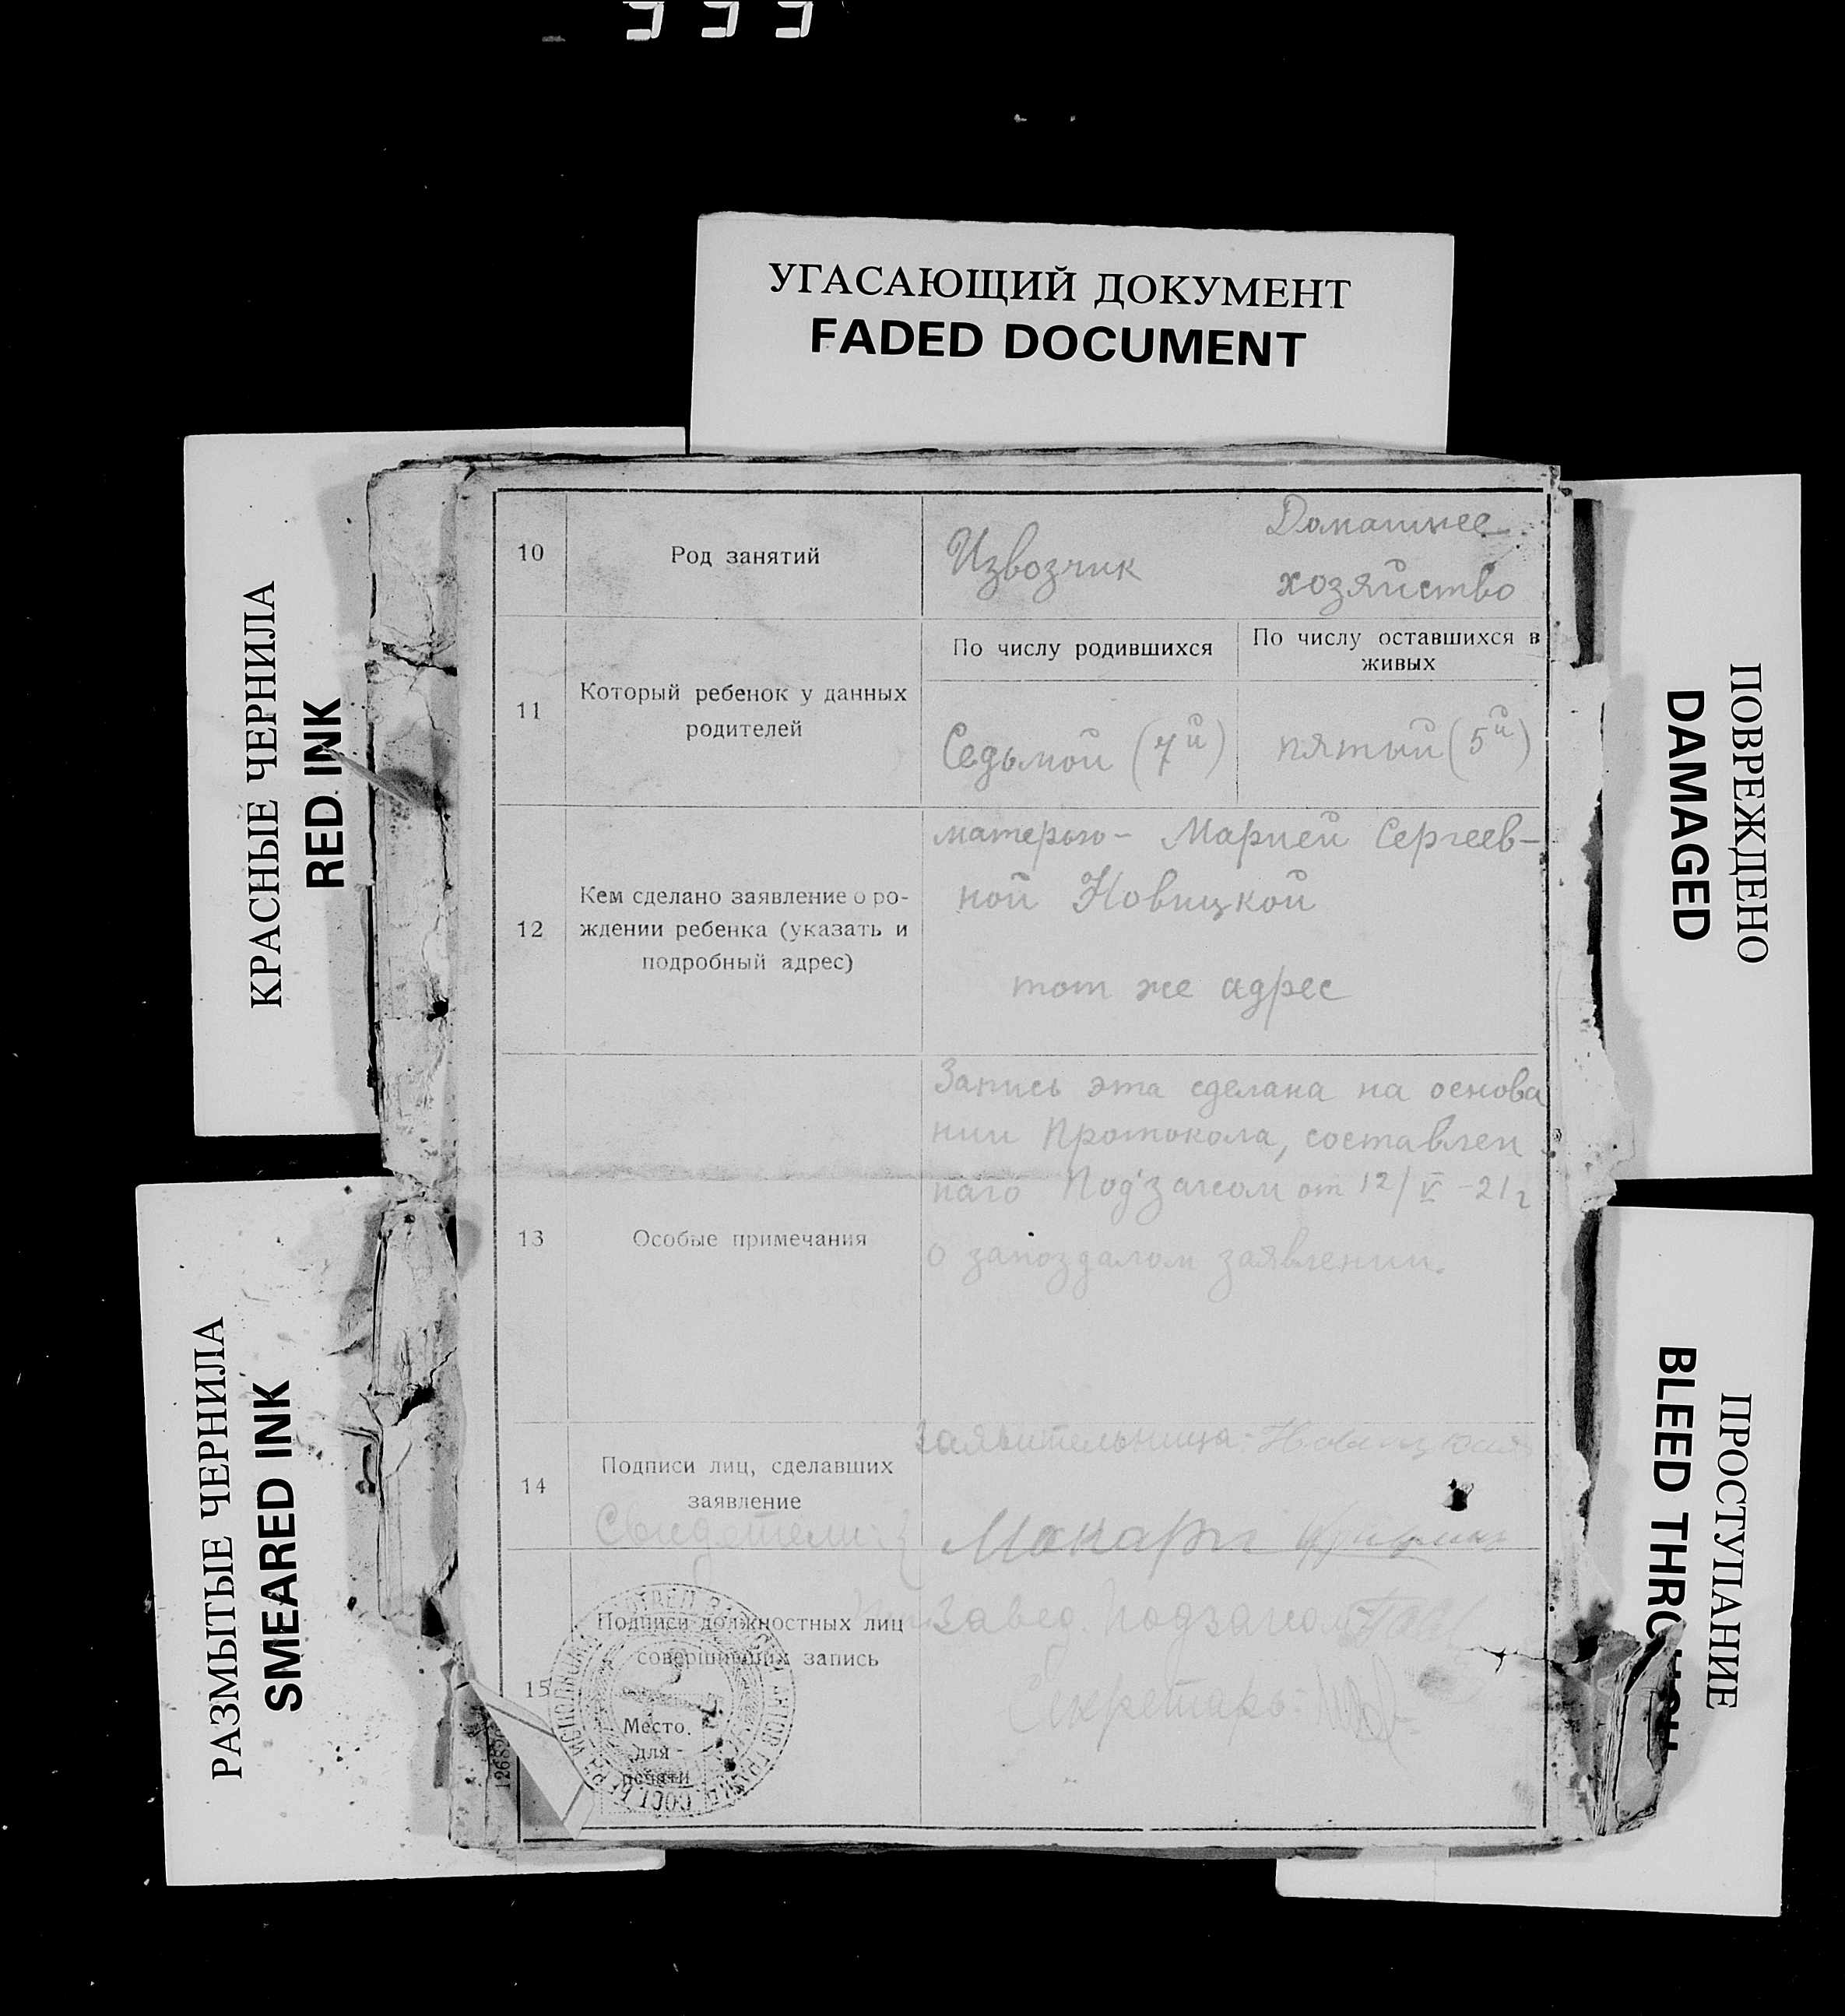 УГАСАЮЩИЙ ДОКУМЕНТ
FADED DOCUMENT
КРАСНЫЕ ЧЕРНИЛА
RED INK
РАЗМЫТЫЕ ЧЕРНИЛА
SMEARED INK
ПОВРЕЖДЕНО
DAMAGED
ПРОСТУПАНИЕ
BLEED THRO
10
Род занятий
Извозчик
Домашнее
хозяйство
11
Который ребенок у данных
родителей
По числу родившихся
По числу оставшихся в
живых
Седьмой (7й)
пятый (5й)
12
Кем сделано заявление о ро-
ждении ребенка (указать и
подробный адрес)
матерью - Марией Сергеев-
ной Новицкой
тот же адрес
13
Особые примечания
Запись эта сделана на основа
нии Протокола, составлен
наго Под'загсом от 12/V -21г
о запоздалом заявлении.
14
Подписи лиц, сделавших
заявление
Заявительница: Новицкая
Свидетели: {
15
Подписи должностных лиц
совершивших запись
Завед. Подзагсом
Секретарь:
Место
для
печати